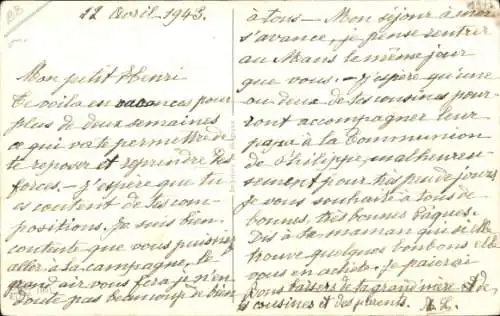 22 Avril 1943.
Mon petit Henri
Te voila en vacances pour
plus de deux semaines
ce qui va te permettre de
te reposer et reprendre des
forces - J'espère que tu
es content de tes com-
positions. Je suis bien
contente que vous puissiez
aller à la campagne, le
grand air vous fera je n'en
doute pas beaucoup de bien
à tous - Mon séjour à
s'avance, je pense rentrer
au Mans le même jour
que vous. - J'espère qu'une
ou deux de tes cousines pour-
ront accompagner leur
papa à la Communion
de Philippe, malheureu-
sement pour très peu de jours
Je vous souhaite à tous de
bonnes, très bonnes Pâques.
Dis à ta maman que si elle
trouve quelques bonbons elle
vous en achète. Je paierai
Bons baisers de ta grand'mère et de
tes cousines et des parents.